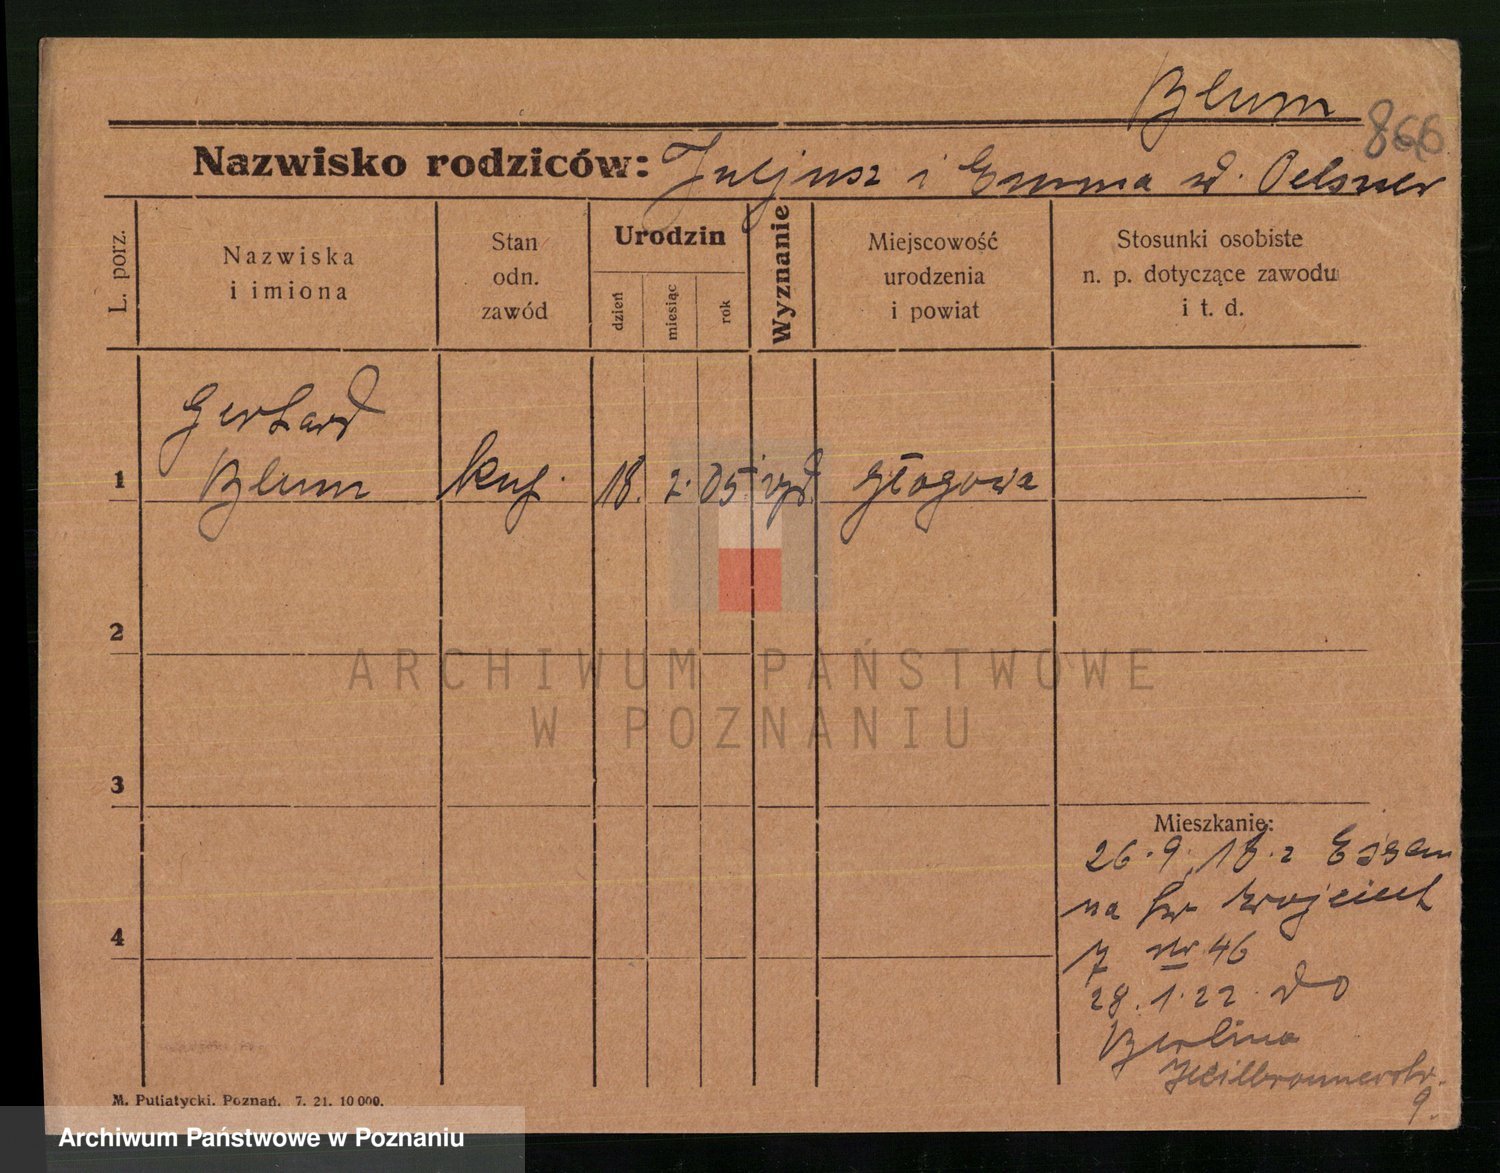 Blum
866
Nazwisko rodziców: Juljusz i Emma d. Oelsner
L. porz.
Nazwiska
i imiona
Stan
odn.
zawód
Urodzin
dzień
miesiąc
rok
Wyznanie
Miejscowość
urodzenia
i powiat
Stosunki osobiste
n. p. dotyczące zawodu
i t. d.
Gerhard
1 Blum kup. 18. 2. 05 żyd. Głogowa
2
3
4
Mieszkanie:
26.9.18. z Essen
na św Wojciech
7 nr 46
28.1.22. do
Berlina
Heilbronnerstr.
9.
M. Putiatycki. Poznań. 7. 21. 10 000.
ARCHIWUM PAŃSTWOWE
W POZNANIU
Archiwum Państwowe w Poznaniu